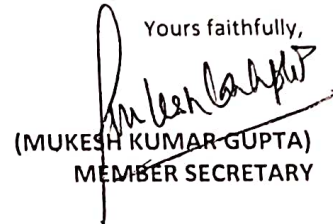 Yours faithfully,
Mukesh Gupta
(MUKESH KUMAR GUPTA)
MEMBER SECRETARY